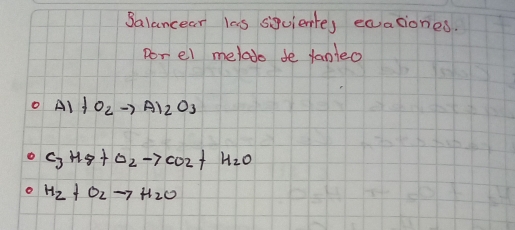 Balancear las siguientes ecuaciones.
Por el metodo de tanteo
Al + O2 → Al2O3
C3H8 + O2 → CO2 + H2O
H2 + O2 → H2O